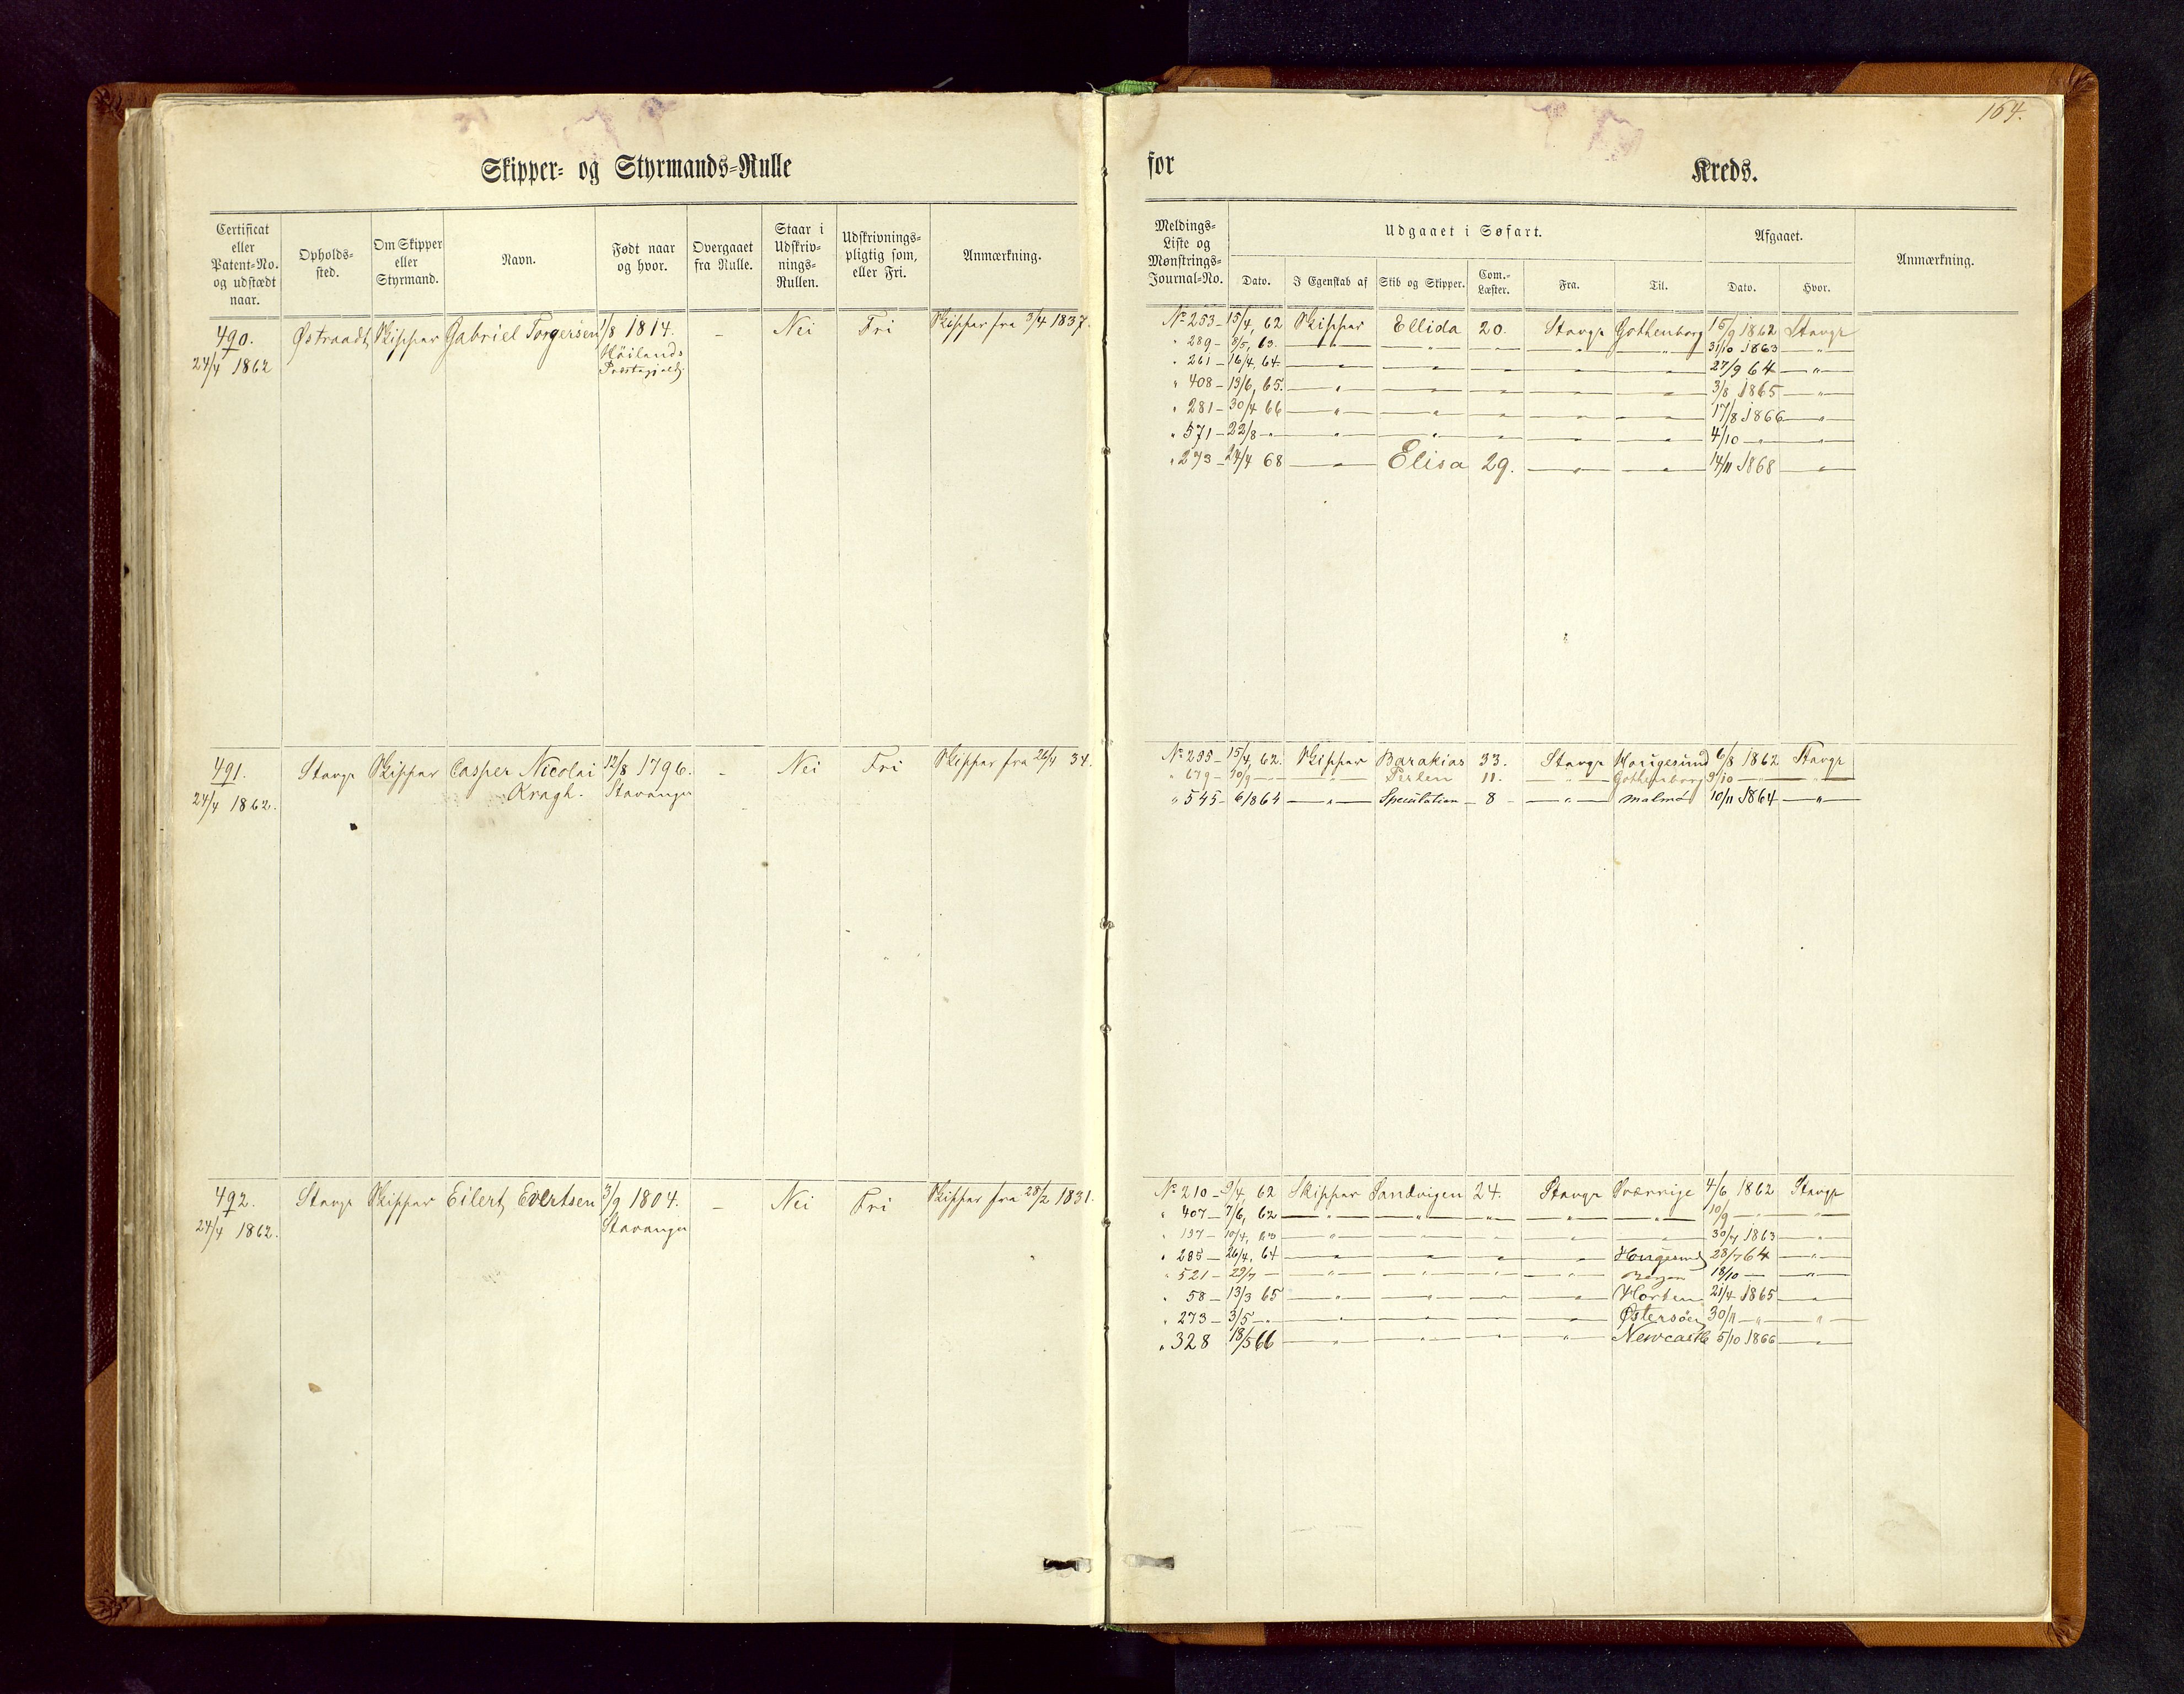 164.
Skipper- og Styrmands-Rulle for Kreds.
Certificat eller Patent-No. og udstædt naar.
Opholds-sted.
Om Skipper eller Styrmand.
Navn.
Født naar og hvor.
Overgaaet fra Rulle.
Staar i Udskriv-nings-Rullen.
Udskrivnings-pligtig som, eller Fri.
Anmærkning.
Meldings-Liste og Mønstrings-Journal-No.
Udgaaet i Søfart.
Dato.
I Egenskab af
Skib og Skipper.
Com.-Læster.
Fra.
Til.
Afgaaet.
Dato.
Hvor.
Anmærkning.
490. Østraadt Skipper Gabriel Torgersen 1/8 1814. - Nei Fri Skipper fra 3/4 1837.
24/4 1862 Höilands Prestegjeld
No 253 - 15/4, 62 Skipper Ellida 20. Stavgr Gothenborg 15/9 1862 Stavgr
" 289 - 8/5, 63. " " " " " 31/10 1863 "
" 261 - 16/4, 64 " " " " " 27/9 64 "
" 408 - 13/6, 65. " " " " " 3/8 1865 "
" 281 - 30/4 66 " " " " " 17/8 1866 "
" 571 - 22/8 - " " " " " " 4/10 - " "
" 273 - 24/4 68 " Elisa 29. " " 14/11 1868 "
491. Stavgr Skipper Casper Nicolai 12/8 1796. - Nei Fri Skipper fra 26/4 34.
24/4 1862. Kragh. Stavanger
No 255 - 15/4, 62. Skipper Barakias 33. Stavgr Hougesund 6/8 1862 Stavgr
" 679 - 10/9 - " Perlen 11. " Gothenborg 9/10 - " "
" 545 - 6/8 64 " Speculation - 8 - " Malmö 10/11 1864 "
492. Stavgr Skipper Eilert Evertsen 3/9 1804. - Nei Fri Skipper fra 28/2 1831.
24/4 1862. Stavanger
No 210 - 9/4, 62 Skipper Sandvigen 24. Stavgr Sverrige 4/6 1862 Stavgr
" 407 - 7/6, 62 " " " " " 10/9 - " "
" 197 - 10/4, 63 " " " " " 30/7 1863 "
" 285 - 26/4, 64 " " " " Hougesund 28/7 64 "
" 521 - 29/7 - " " " " Bergen 18/10 - "
" 58 - 13/3 65 " " " " Horten 21/4 1865 "
" 273 - 3/5 - " Østersöen 30/11 - " "
" 328 18/5 66 " " " " Newcastle 5/10 1866 "